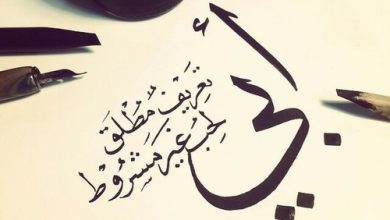 أبي
تعريف مُطْلَق
لحب غير مَشْرُوط